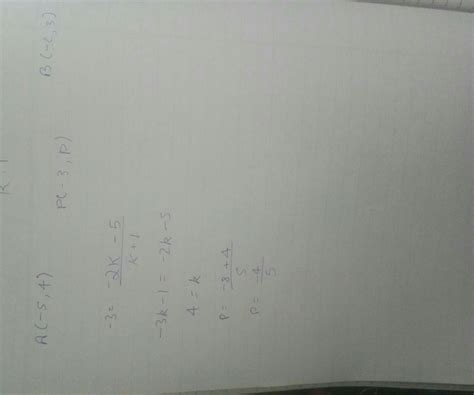 A(-5,4) P(-3,P) B(-2,3)
-3 = -2k - 5
k+1
-3k-1 = -2k-5
4 = k
P = -8+4
5
P = -4
5